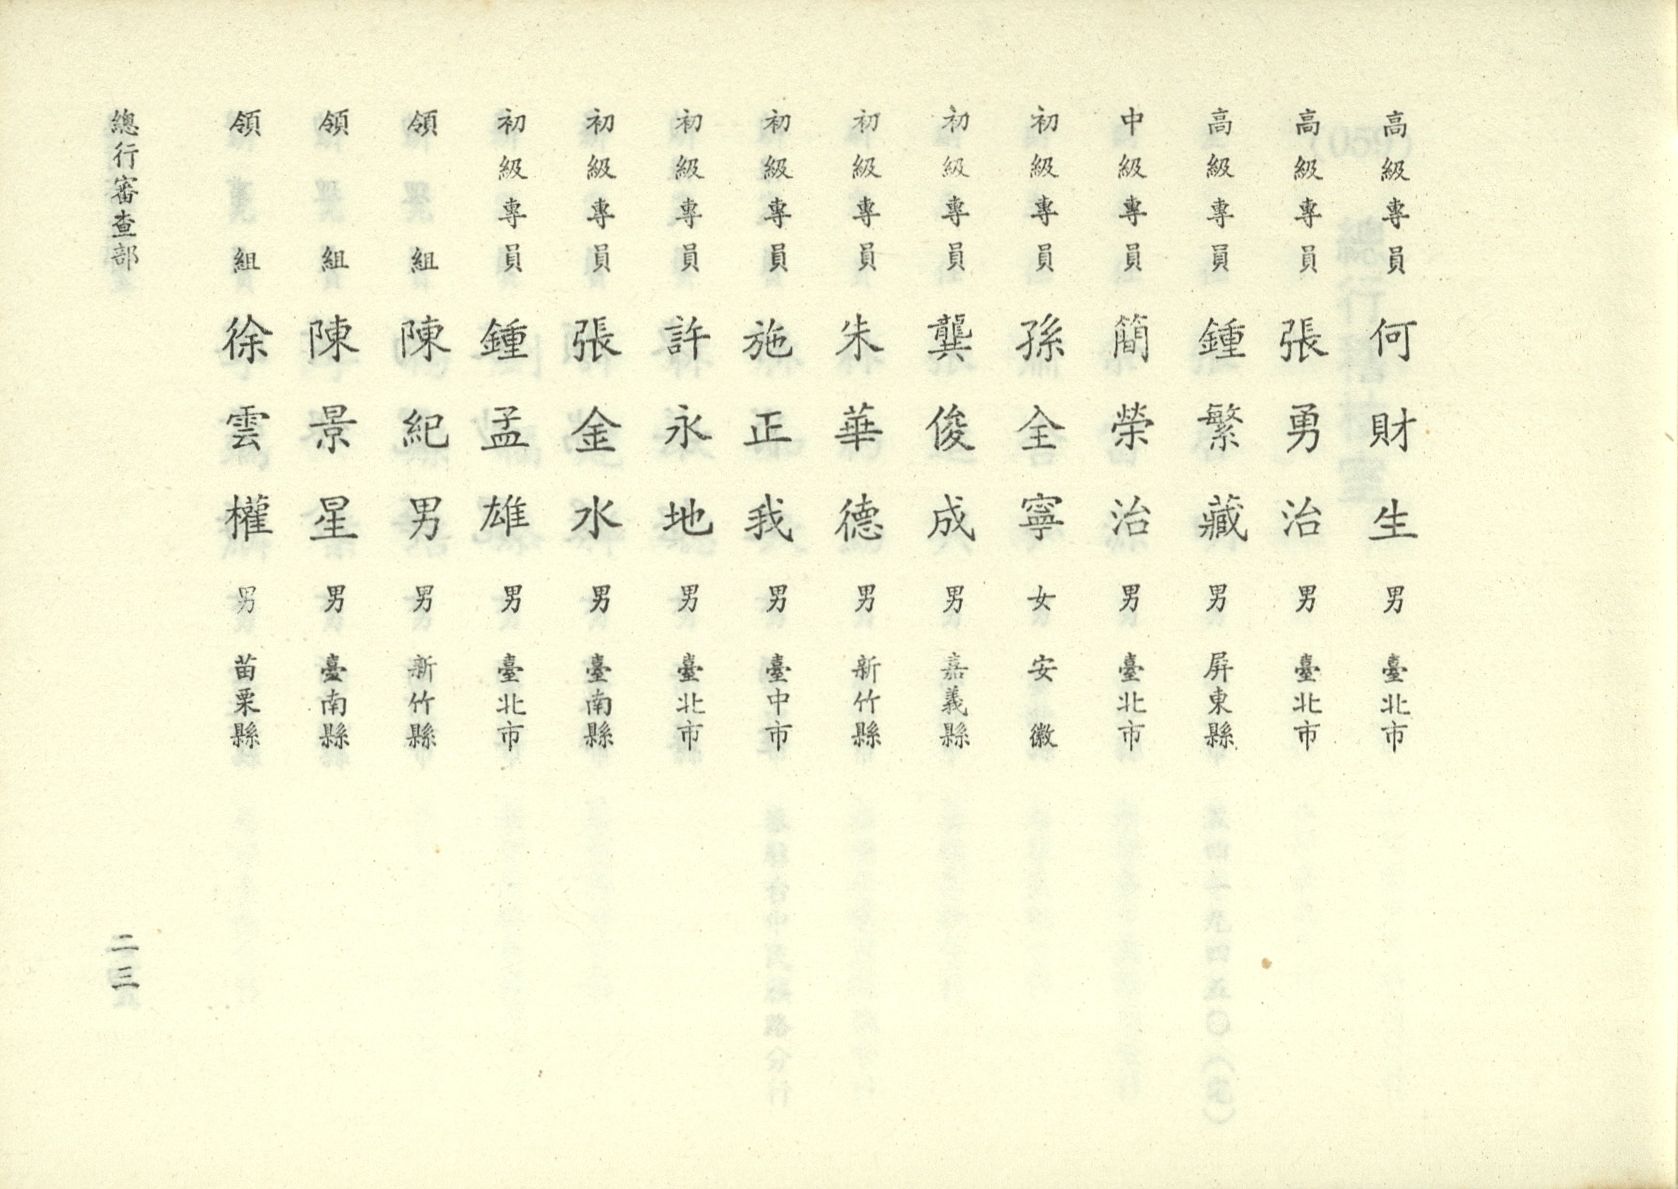 高級專員 何財生 男 臺北市
高級專員 張勇治 男 臺北市
高級專員 鍾繁藏 男 屏東縣
中級專員 簡榮治 男 臺北市
初級專員 孫全寧 女 安徽
初級專員 龔俊成 男 嘉義縣
初級專員 朱華德 男 新竹縣
初級專員 施正我 男 臺中市
初級專員 許永地 男 臺北市
初級專員 張金水 男 臺南縣
初級專員 鍾孟雄 男 臺北市
領組 陳紀男 男 新竹縣
領組 陳景星 男 臺南縣
領組 徐雲權 男 苗栗縣
總行審查部 二三